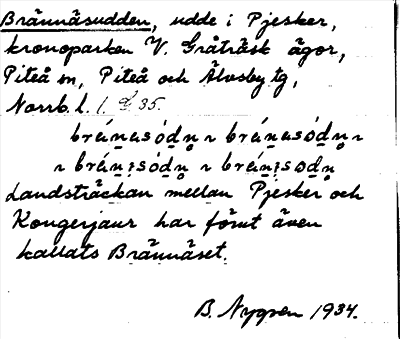 Brännäsudden, udde i Pjesker,
kronoparken V. Gråträsk ägor,
Piteå sn, Piteå och Älvsby tg,
Norrb. l. 1. 35.
bränasódn ~ bränasódn ~
~ bränisódn ~ bränisodn
Landsträckan mellan Pjesker och
Kongerjaur har förut även
kallats Brännäset.
B. Nygren 1934.